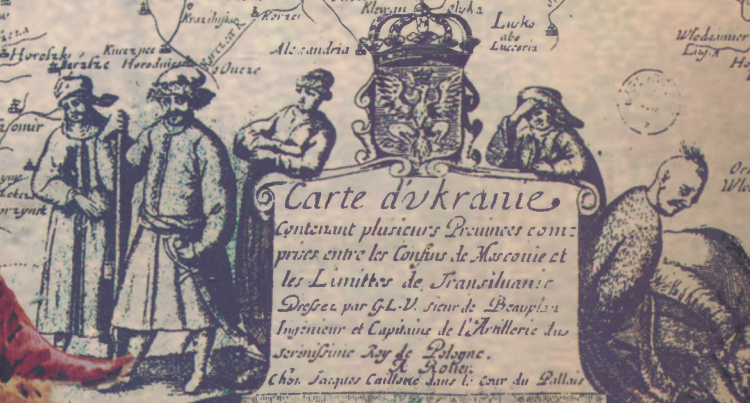 Krazibrfow
Korzec
Klewan
olyka
Lusko
abo
Luccoria
Wlodzimier
Alexandria
Horeszki
Krurzpec
Horodnica
Korzec R
Oucze
Carte d'vkranie
Contenant plusieurs Prouinces com=
prises entre les Confins de Moscouie et
les Limittes de Transiluanie
Dressez par G.L.V. sieur de Beauplan
Ingenieur et Capitaine de l'Artillerie du
serenissime Roy de Pologne.
A Roüen
Chez Jacques Cailloué dans la Cour du Pallais